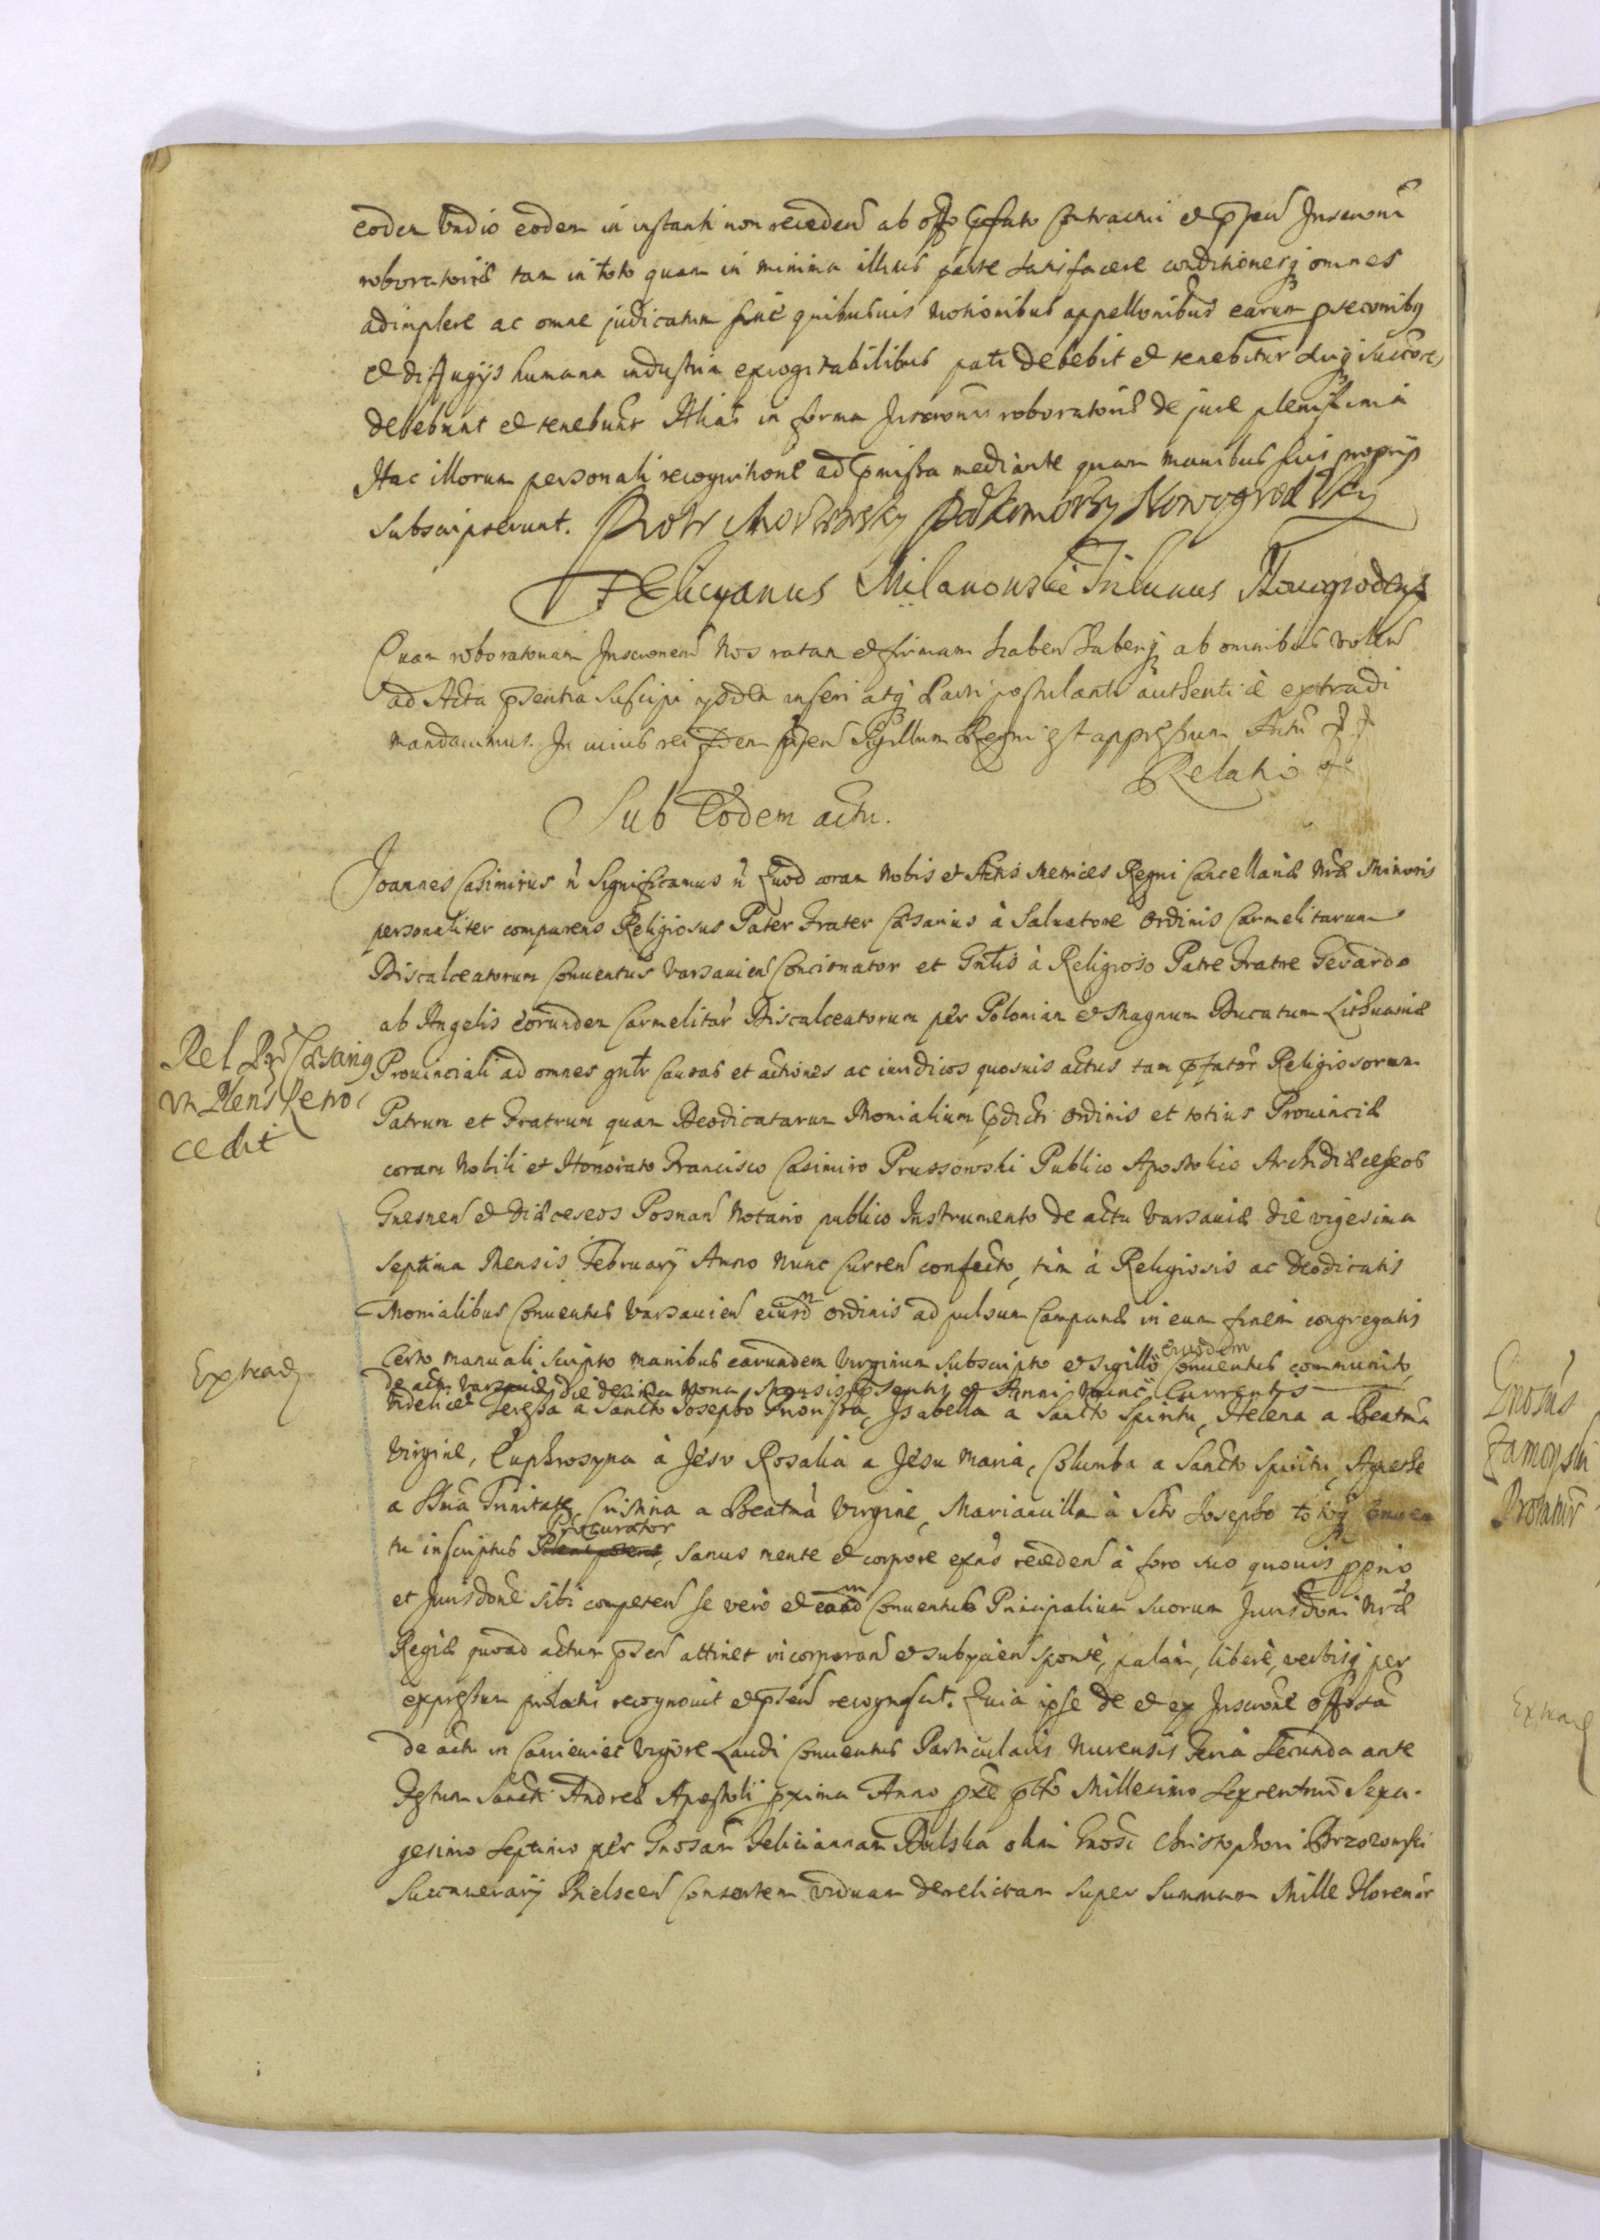 eodem vadio eodem in instanti non receden ab offo pfato contractui et psen Inscrioni
roboratoriæ tam in toto quam in minima illius parte satisfacere conditionesq omnes
adimplere ac omne judicatum sine quibusuis motionibus appellonibus earum psecuonibq
et diffugijs humana industria excogitabilibus pati debebit et tenebitur suiq Succores
debebunt et tenebuntr Alias in forma Inscrionis roboratoriæ de jure plenissima
Hac illorum personali recognitione ad pmissa mediante quam manibus suis proprijs
subscripserunt. Piotr Podkomorzy Nowogrodzky
Felicyanus Milanouski Tribunus Nowogrodensis
Quam roboratoriam Inscrionem Nos ratam et firmam haben haberiq ab omnibus volen
ad Acta psentia suscipi ijsdem inseri atq Parti postulanti authenticè extradi
mandauimus. In cuius rei fidem psen Sigillum Regni est appressum Actum
Relatio
Sub Eodem actu.
Joannes Casimirus Significamus Quod coram Nobis et Actis Metrices Regni Cancellariæ Nræ Minoris
personaliter comparens Religiosus Pater Frater Cæsarius à Saluatore Ordinis Carmelitarum
Discalceatorum Conuentus Varsauien Concionator et Gnlis à Religioso Patre Fratre Geuardo
ab Angelis eorundem Carmelitar Discalceatorum per Poloniam et Magnum Ducatum Lithuaniæ
Rel Cæsarius
Prouinciali ad omnes gnlr Causas et actiones ac iuridicos quosuis actus tam pfator Religiosorum
Patrum et Fratrum quam Deodicatarum Monialium pdicti Ordinis et totius Prouinciæ
cedit
coram Nobili et Honorato Francisco Casimiro Prussowski Publico Apostolico Archidiæceseos
Gnesnen et Diæceseos Posnan Notario publico Instrumento de actu Varsauiæ die vigesima
septima Mensis February Anno nunc curren confecto, tum à Religiosis ac deodicatis
Monialibus Conuentus Varsauien eiusdm Ordinis ad pulsum Campanæ in eum finem congregatis
Extrad
Certo manuali scripto manibus earundem Virginum subscripto et sigillo eiusdem Conuentus communito,
de actu Varsauiæ die decima Nona Mensis psentis et Anni nunc Currentis
videlicet Teressa à Sancto Josepho Priorissa, Isabella a Sancto Spiritu, Helena a Beatma
Virgine, Euphrosyna à Jesu Rosalia a Jesu Maria, Columba a Sancto Spiritu, Agnethe
a Ssma Trinitate, Cristina a Beatma Virgine, Mariancilla à Scto Josepho totoq Conuen
tu inscriptus Procurator Plenipotens, sanus mente et corpore exns receden à foro suo quouis pprio
et Jurisdone sibi competen se vero et eaad m Conuentus Principalium suorum Jurisdoni Nræ
Regiæ quoad actum psen attinet incorporan et subijcien sponte, palam, liberè, verbisq per
expressum prolatis recognouit et psen recognoscit. Quia ipse de et ex Inscrione
de actu in Camieniec vigore Laudi Conuentus Particularis Nurensis Feria Secunda ante
Festum Sancti Andreæ Apostoli pxima Anno pxe pto Millesimo Sexcentmo Sexa-
gesimo Septimo per Gnosam Feliciannam Bulska olim Gnosi Christophori Brzozowski
Succamerarij Bielscen Consortem viduam derelictam super summam Mille Florenor
Gnosus
Zamoyski
Extrad